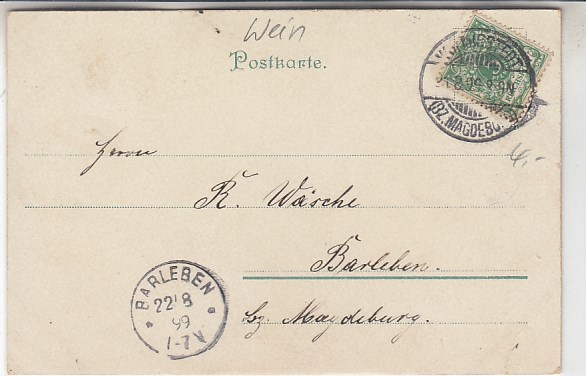 Wein
Postkarte.
(BZ. MAGDEBG.)
4,-
Herrn
R. Wäsche
Barleben.
bz. Magdeburg.
BARLEBEN
22 8
99
1-7N